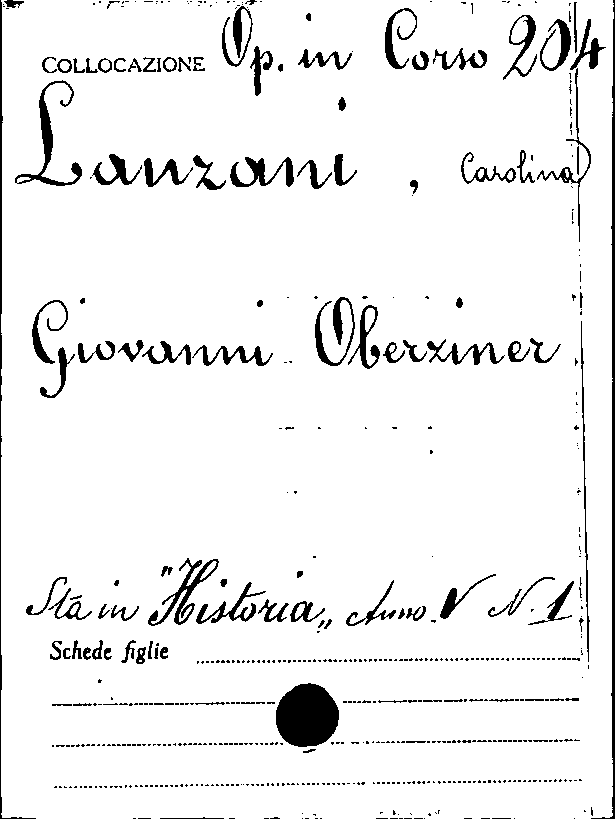 COLLOCAZIONE Op. in Corso 204
Lanzani, Carolina
Giovanni Oberziner
Sta in "Historia„ Anno V N. 1
Schede figlie